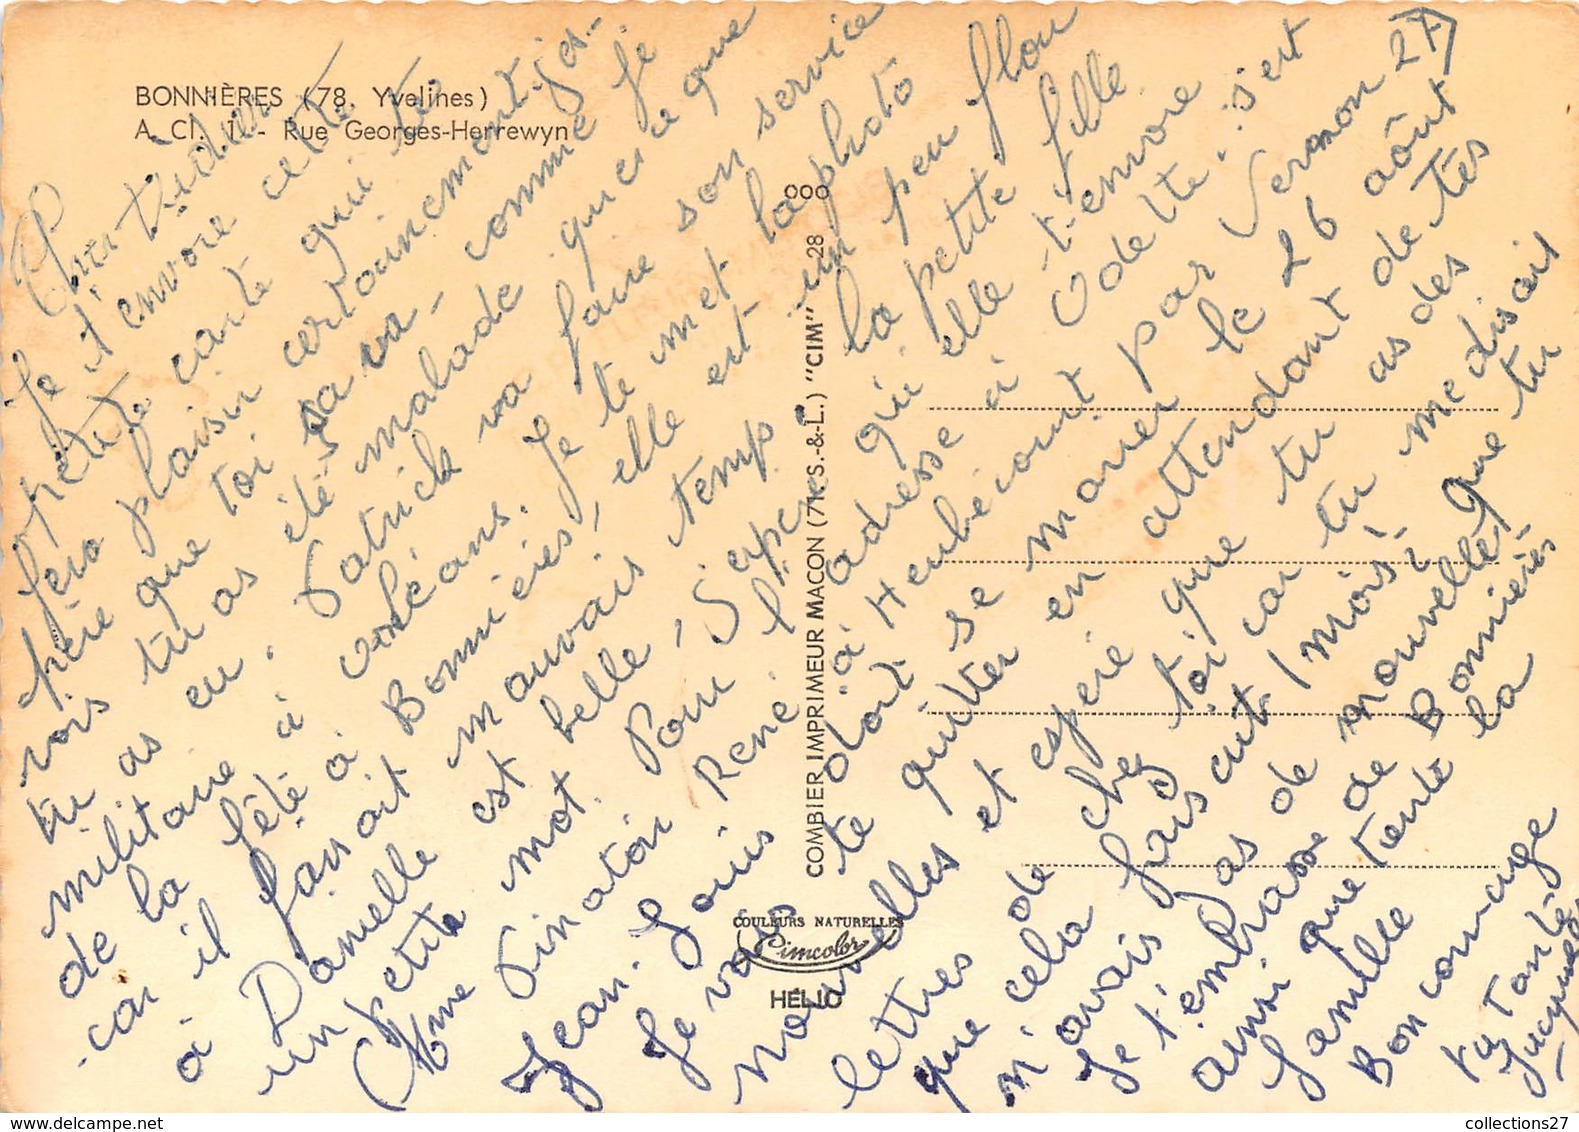 BONNIÈRES (78. Yvelines)
A. Cl. 11. - Rue Georges-Herrewyn
Cher Didier
Je t'envoie cette
petite carte qui te
fera plaisir certainement j'es-
père que toi sa va - comme je
vois tu as étés malade que
tu as eu. Patrick va faire son service
militaire à orléans. Je te met la photo
de la fête à Bonnières, elle est un peu flou
car il faisait mauvais temps la petite fille
à Danielle est belle, Super qui elle t'envoie
un petite mot. Pour l'adresse à Odette: s'est
Mme Pinaton René à Heubécourt par Vernon 27
Jean-Louis doit se marier le 26 aôut
Je vais te quitter en attendant de tes
nouvelles et espère que tu as des
lettres de chez toi car tu me disais
que cela faisait 1 mois que tu
n'avais pas de nouvelles
Je t'embrasse de Bonnières
ainsi que toute la
famille
Bon courage
ta Tante
Jacqueline
COMBIER IMPRIMEUR MACON (71 S.-&-L.) "CIM" 28 000
COULEURS NATURELLES
Cimcolor
HELIO
collections27